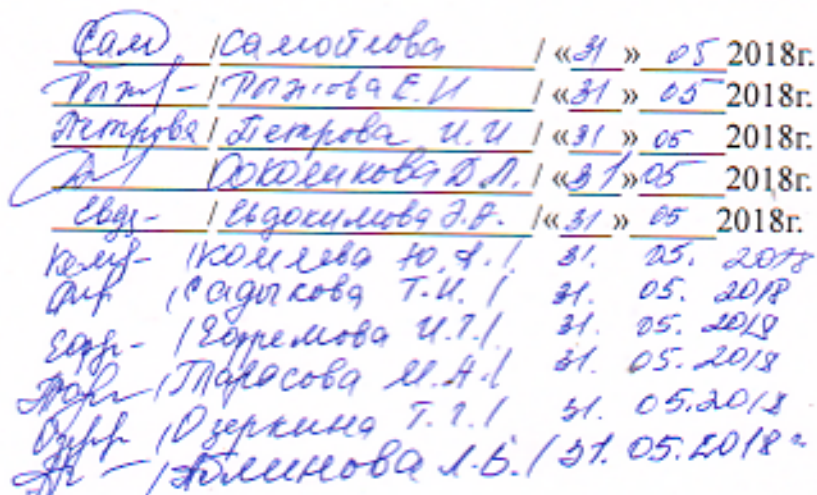 Сам /Самойлова / «31» 05 2018г.
/ Рыжова Е.И / «31» 05 2018г.
Петрова / Петрова И.И / «31» 05 2018г.
/ Соколикова Д.Л. / «31» 05 2018г.
Евд- / Евдокимова Э.А. / «31» 05 2018г.
/ Комлева Ю.А. / 31. 05. 2018
/ Садыкова Т.И. / 31. 05. 2018
/ Ефремова И.Т. / 31. 05. 2018
/ Тарасова М.А. / 31. 05. 2018
/ Озеркина Т.Г. / 31. 05. 2018
/ Л.Б. / 31. 05. 2018 г